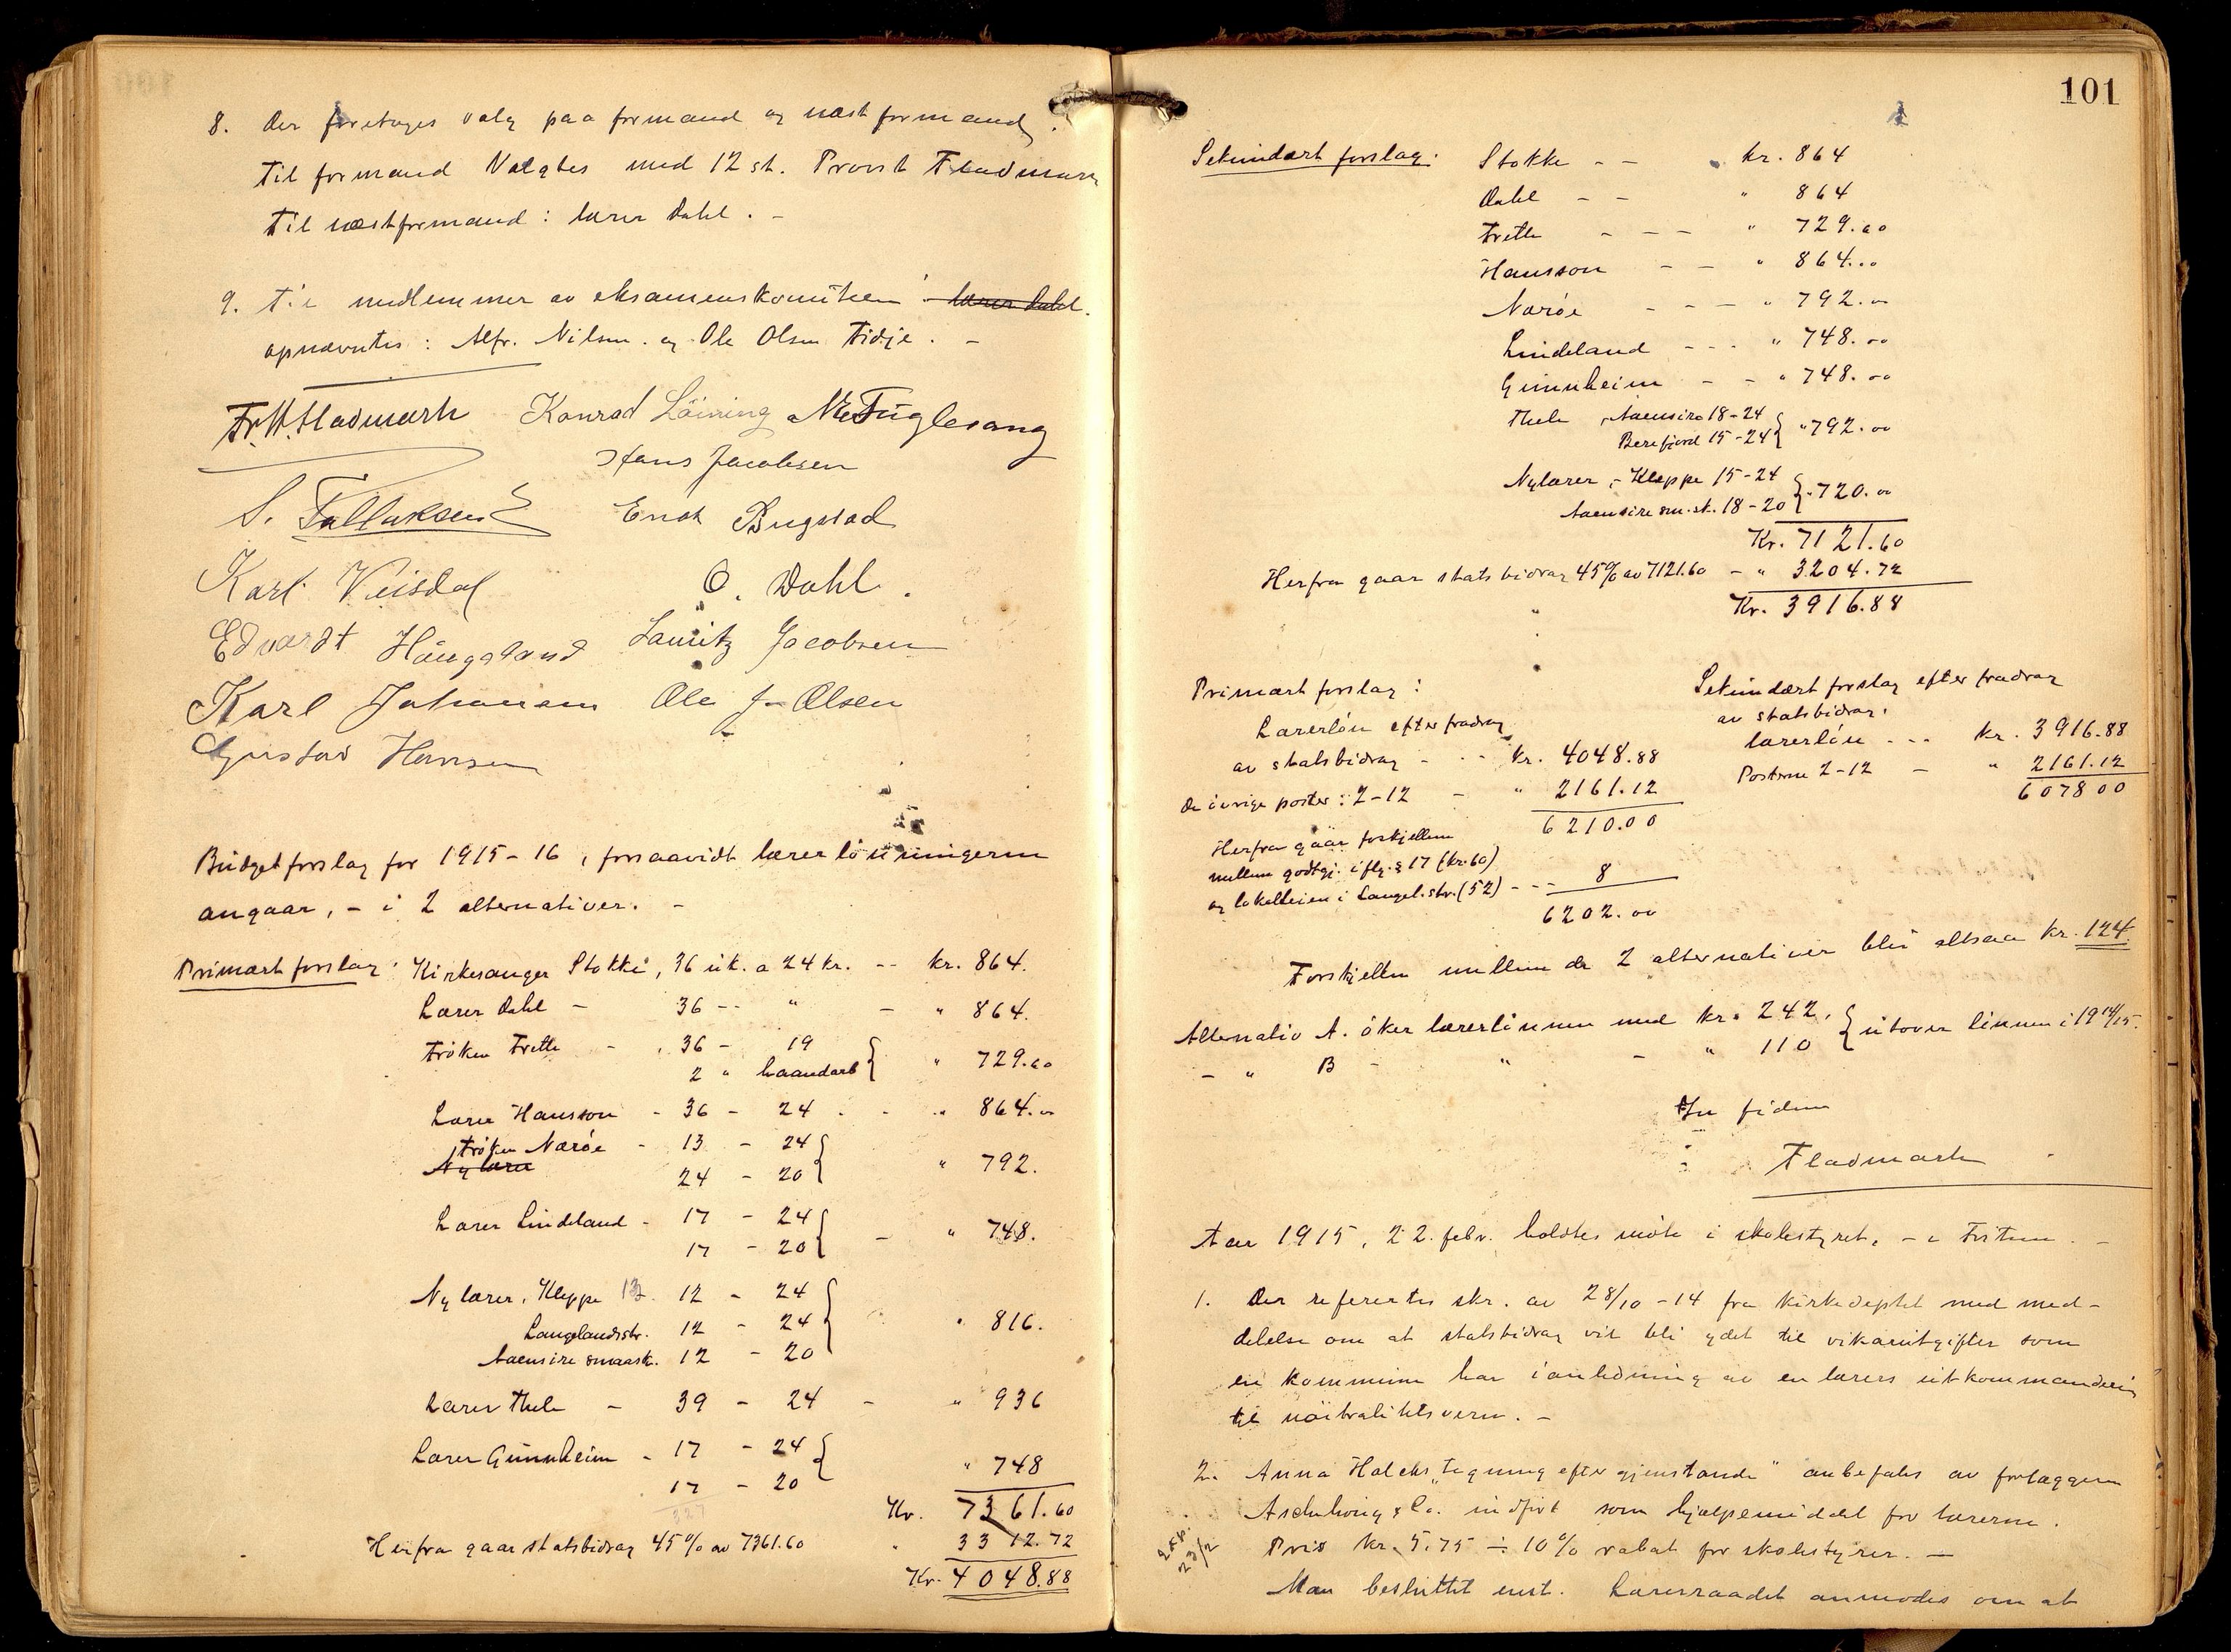 8. Der foretages valg paa formand og næstformand.
Til formand Valgtes med 12 st. Provst Fladmark
Til næstformand: lærer Dahl. -
9. Til medlemmer av eksamenskomiteen lærer Dahl.
opnævntes: Alfr. Nilsen. og Ole Olsen Tidje. -
Fr. M. Fladmark Konrad Löining NETuglesang
Hans Jacobsen
S. Tallaksen Enok Bugstad
Karl Veisdal O. Dahl.
Edvardt Haugeland Lauritz Jacobsen
Karl Johansen Ole J. Olsen
Gustav Hansen
Budgetforslag for 1915-16, forsaavidt lærerlönningerne
angaar, - i 2 alternativer. -
Primært forslag: Kirkesanger Stokke, 36 uk. a 24 kr. -- kr. 864.
Lærer Dahl - 36 -- " - " 864.
Fröken Frette - 36 - 19
2 " haandarb } " 729.60
Lærer Hansson - 36 - 24 - " 864.00
Fröken Næröe - 13 - 24
Ny lærer
24 - 20 } " 792.
Lærer Lindeland - 17 - 24
17 - 20 } - " 748.
Ny lærer, Kleppe 12 - 24
Langelandsstr. 12 - 24 } " 816.
Aaensire smaask. 12 - 20
Lærer Thele - 39 - 24 - " 936
Lærer Gunnheim - 17 - 24
17 - 20 } " 748
Kr. 7361.60
Herfra gaar statsbidrag 45% av 7361.60 " 3312.72
Kr. 4048.88
101
Sekundært forslag: Stokke - - kr. 864
Dahl - - " 864
Frette - - - " 729.60
Hansson - - " 864.00
Næröe - - - " 792.00
Lindeland - - - " 748.00
Gunnheim - - " 748.00
Thele, Aaensire 18-24
Berefjord 15-24 } " 792.00
Nylærer, - Kleppe 15-24
Aaensire sm.sk. 18-20 } " 720.00
Kr. 7121.60
Herfra gaar statsbidrag 45% av 7121.60 - " 3204.72
Kr. 3916.88
Primært forslag:
Lærerlön efter fradrag
av statsbidrag - - - kr. 4048.88
De övrige poster: 2-12 - " 2161.12
6210.00
Herfra gaar forskjellen
mellem godtgj. iflg. § 17 (kr. 60)
og lokalleien i Langel.str. (52) - - - 8
6202.00
Sekundært forslag efter fradrag
av statsbidrag.
lærerlön - - - kr. 3916.88
Posterne 2-12 - " 2161.12
6078 00
Forskjellen mellem de 2 alternativer blir altsaa kr. 124.
Alternativ A. öker lærerlönnen med kr. 242.
- " B - " - " 110 } utover lönnen i 1914/15.
In fidem
Fladmark
Aar 1915, 22. febr. holdtes möte i skolestyret, - i Fristun. -
1. Der refereertes skr. av 28/10 - 14 fra kirkedeptet med med-
delelse om at statsbidrag vil bli ydet til vikarutgifter som
en kommune har i anledning av en lærers utkommandering
til nöitralitetsvern. -
2. Anna Holcks "tegning efter gjenstande" anbefales av forlæggeren
Aschehoug & Co. indfört som hjælpemiddel for lærerne.
Pris kr. 5.75 ÷ 10% rabat for skolestyrer. -
Exp. 23/2
Man besluttet enst. Lærerraadet anmodes om at